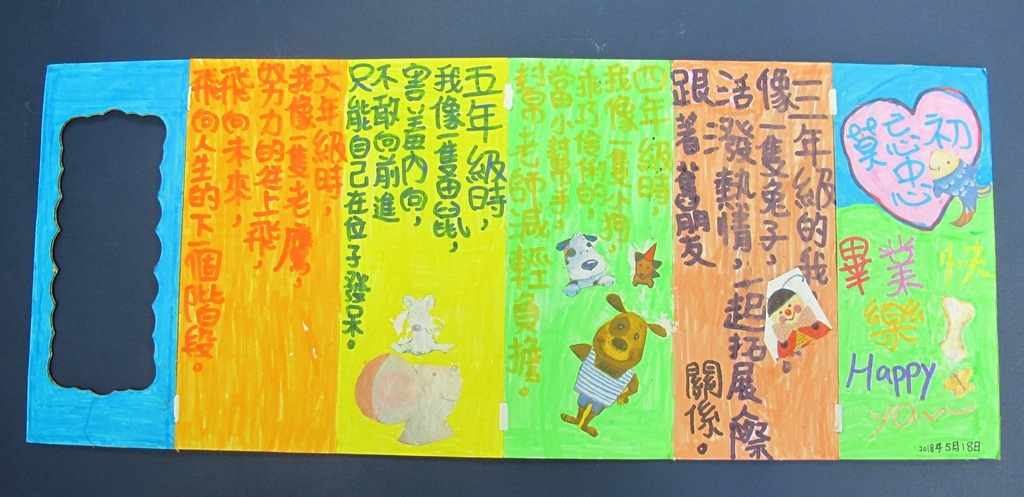 莫忘初
忠
畢業快
樂
Happy
ya~
2018年5月18日
三年級的我
像一隻兔子，
活潑熱情，
跟著舊朋友
一起拓展人際
關係。
四年級時，
我像一隻小狗，
乖巧伶俐的，
當小幫手，
幫老師減輕負擔。
五年級時，
我像一隻田鼠，
害羞內向，
不敢向前進
只能自己在位子發呆。
六年級時，
我像一隻老鷹，
努力的往上飛，
飛向未來，
飛向人生的下一個階段。